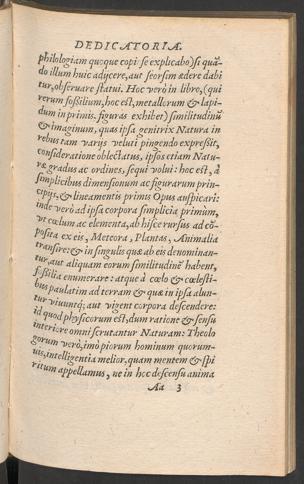 DEDICATORIA.
philologiam quoque copi se explicabo) si quã-
do illum huic adijcere, aut seorsim ædere dabi
tur, obseruare statui. Hoc verò in libro, (qui
rerum fossilium, hoc est, metallorum & lapi-
dum in primis figuras exhibet) similitudinũ
& imaginum, quas ipsa genitrix Natura in
rebus tam varijs veluti pingendo expressit,
consideratione oblectatus, ipsos etiam Natu-
ræ gradus ac ordines, sequi volui: hoc est, à
simplicibus dimensionum ac figurarum prin-
cipijs, & lineamentis primis Opus auspicari:
inde verò ad ipsa corpora simplicia primùm,
vt cœlum ac elementa, ab hisce rursus ad cõ-
posita ex eis, Meteora, Plantas, Animalia
transire: & in singulis quæ ab eis denominan-
tur, aut aliquam eorum similitudinẽ habent,
fossilia enumerare: atque à cœlo & cœlesti-
bus paulatim ad terram & quæ in ipsa alun-
tur viuuntq́; aut vigent corpora descendere:
id quod physicorum est, dum ratione & sensu
interiore omni scrutantur Naturam: Theolo
gorum verò, imò piorum hominum quorum-
uis, intelligentia melior, quam mentem & spi
ritum appellamus, ne in hoc descensu anima
Aa 3